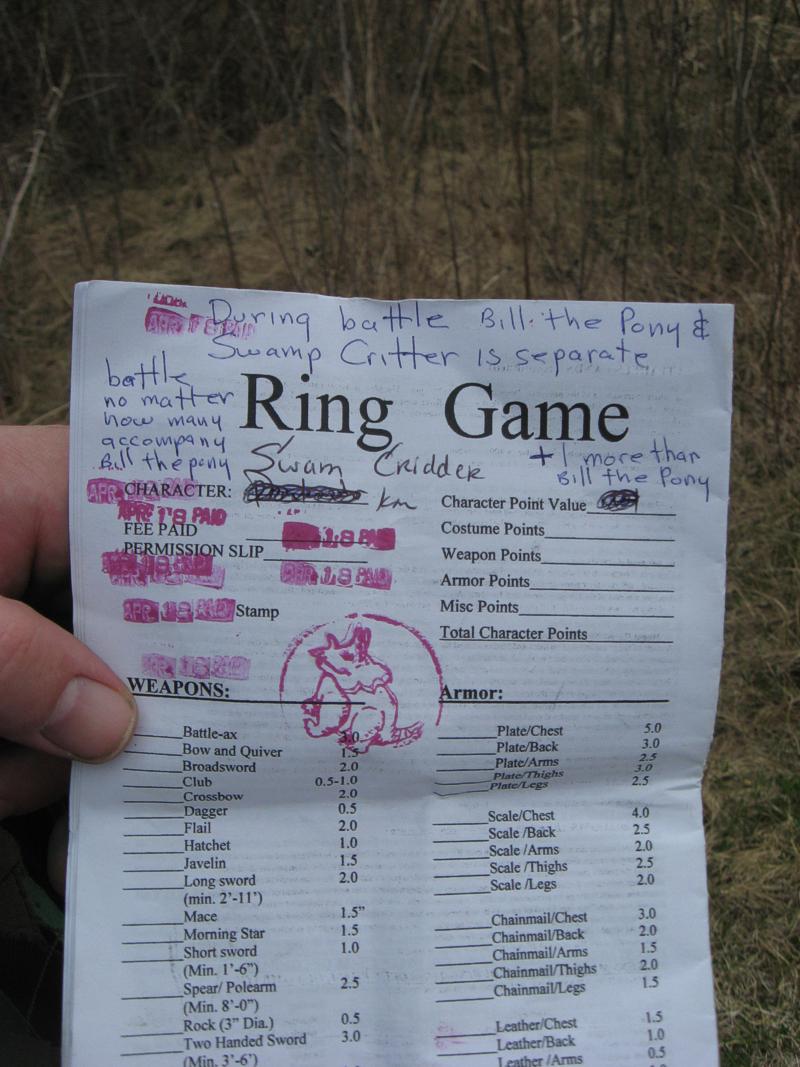 During battle Bill the Pony &
Swamp Critter is separate
battle
no matter
how many
accompany
Bill the pony
Ring Game
+1 more than
Bill the Pony
Swam Cridder
CHARACTER:
km
Character Point Value
APR 18 PAID
FEE PAID
Costume Points
PERMISSION SLIP
Weapon Points
Armor Points
APR 18 PAID
Stamp
Misc Points
Total Character Points
WEAPONS:
Armor:
Battle-ax 3.0
Bow and Quiver 1.5
Broadsword 2.0
Club 0.5-1.0
Crossbow 2.0
Dagger 0.5
Flail 2.0
Hatchet 1.0
Javelin 1.5
Long sword 2.0
(min. 2'-11')
Mace 1.5"
Morning Star 1.5
Short sword 1.0
(Min. 1'-6")
Spear/ Polearm 2.5
(Min. 8'-0")
Rock (3" Dia.) 0.5
Two Handed Sword 3.0
(Min. 3'-6')
Plate/Chest 5.0
Plate/Back 3.0
Plate/Arms 2.5
Plate/Thighs 3.0
Plate/Legs 2.5
Scale/Chest 4.0
Scale /Back 2.5
Scale /Arms 2.0
Scale /Thighs 2.5
Scale /Legs 2.0
Chainmail/Chest 3.0
Chainmail/Back 2.0
Chainmail/Arms 1.5
Chainmail/Thighs 2.0
Chainmail/Legs 1.5
Leather/Chest 1.5
Leather/Back 1.0
Leather /Arms 0.5